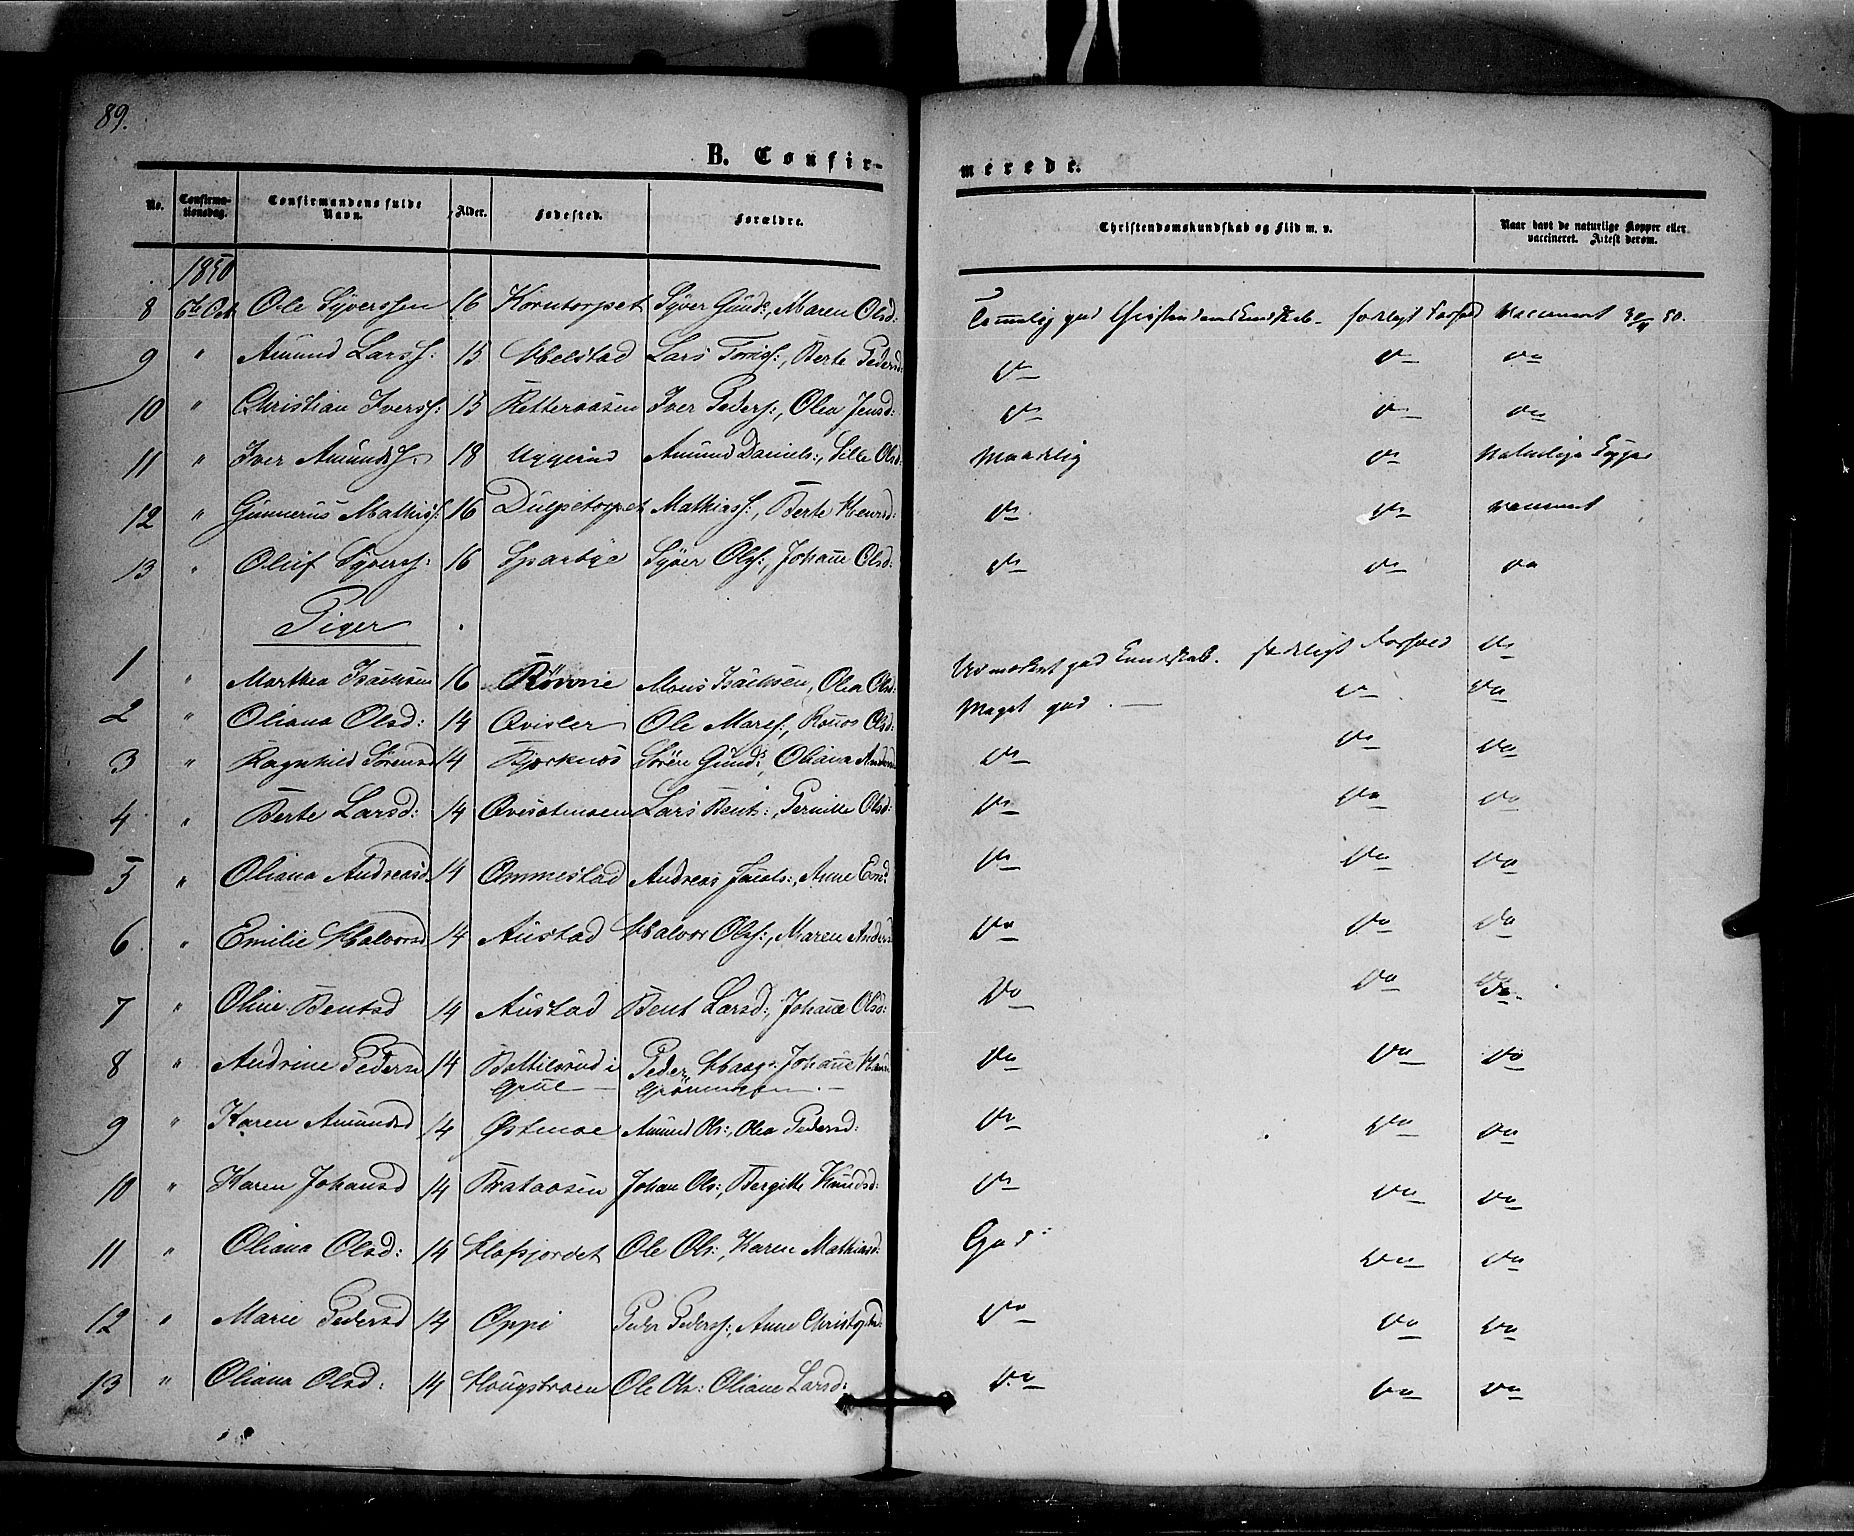 89.
B. Confir-
merede.
No. Confirma-tionsdag. Confirmandens fulde Navn. Alder. Fødested. Forældre. Christendomskundskab og Flid m. v. Naar havt de naturlige Kopper eller vaccineret. Attest derom.
1850
8 6te Oct Ole Syverssen 16 Korntorpet Syver Gunds:, Maren Olsd: Temmelig god Christendomskundskab - sædeligt Forhold Vaccineret 50.
9 " Amund Larss: 15 Helstad Lars, Berte Pedersd: Do Do Do
10 " Christian Iverss: 15 Retteraasen Iver Peders:, Olea Jensd: Do Do Do
11 " Iver Amunds: 18 Uggerud Amund Daniels:, Olsd: Maadelig Do Naturlige
12 " Gunnerus Mathiss: 16 Dulpetorpet Mathiass:, Berte Do Do vaccineret
13 " Oluf Syverss: 16 Sparbye Syver Ols:, Johanne Olsd: Do Do Do
Piger
1 " Marthea Isachsen 16 Rønne Mons Isachsen, Olea Olsd: Udmærket god Kundskab. sædeligt Forhold Do
2 " Oliana Olsd: 14 Qvisler Ole, Olsd: Meget god Do Do
3 " Ragnhild Sørensd 14 Bjørknes Søren Gunds:, Oliana Do Do Do
4 " Berte Larsd: 14 Lars Bents:, Pernille Olsd: Do Do Do
5 " Oliana Andreasd 14 Ommestad Andreas Jacobs:, Anne Do Do Do
6 " Emilie Halvorsd 14 Austad Halvor Ols:, Maren Anders Do Do Do
7 " Oline Bentsd 14 Austad Bent Larsd:, Johane Olsd: Do Do Do.
8 " Andrine Peders 14 Battilsrud i Peder Haag Johane Do Do Do
Grue
9 " Karen Amundsd 14 Østmoe Amund Ols:, Olea Pedersd: Do Do Do
10 " Karen Johansd 14 Brataasen Johan Ols:, Bergitte Knudsd: Do Do Do
11 " Oliana Olsd: 14 Ole Ols:, Karen Mathiasd: God: Do Do
12 " Marie Pedersd 14 Oppi Peder Peders:, Anne Do Do Do
13 " Oliana Olsd: 14 Ole Ols: Oliane Larsd: Do Do Do